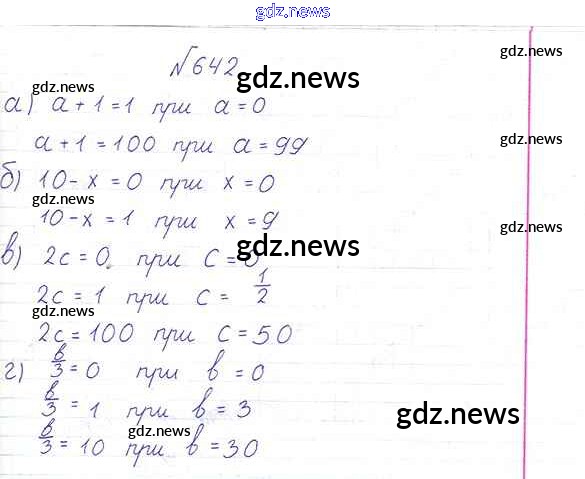 gdz.news
№642
gdz.news
gdz.news
gdz.news
а) a + 1 = 1 при a = 0
a + 1 = 100 при a = 99
gdz.news
б) 10 - x = 0 при x = 0
gdz.news
10 - x = 1 при x = 9
gdz.news
gdz.news
в) 2c = 0 при c = 0
2c = 1 при c = 1/2
gdz.news
gdz.news
2c = 100 при c = 50
г) в/3 = 0 при в = 0
в/3 = 1 при в = 3
gdz.news
gdz.news
в/3 = 10 при в = 30